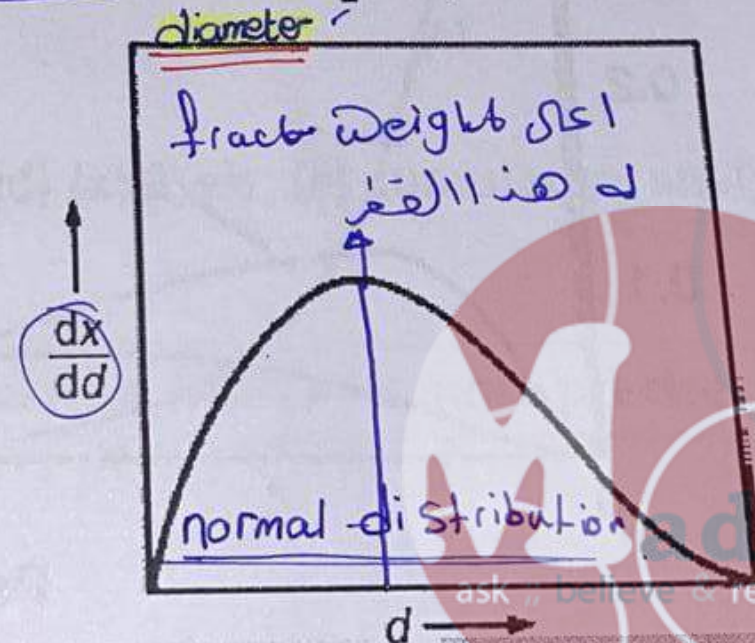 diameter
fract weight اعلى
له هذا القطر
dx
dd
normal distribution
ad
ask ,, believe & re
d